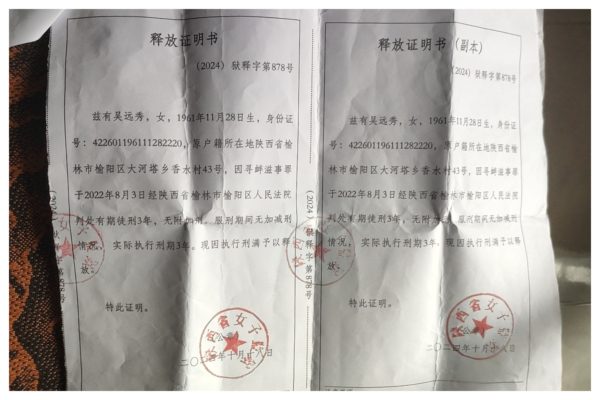 释放证明书
(2024) 狱释字第878号
兹有吴远秀，女，1961年11月28日生，身份证
号：422601196111282220，原户籍所在地陕西省榆
林市榆阳区大河塔乡香水村43号，因寻衅滋事罪
于2022年8月3日经陕西省榆林市榆阳区人民法院
判处有期徒刑3年、无附加刑。服刑期间无加减刑
情况，实际执行刑期3年。现因执行刑满予以释
放。
特此证明。
陕西省女子监
二〇二四年十月十八日
(2024) 狱释字第878号
释放证明书（副本）
(2024) 狱释字第878号
兹有吴远秀，女，1961年11月28日生，身份证
号：422601196111282220，原户籍所在地陕西省榆
林市榆阳区大河塔乡香水村43号，因寻衅滋事罪
于2022年8月3日经陕西省榆林市榆阳区人民法院
判处有期徒刑3年、无附加刑。服刑期间无加减刑
情况，实际执行刑期3年。现因执行刑满予以释
放。
特此证明。
陕西省女子监
二〇二四年十月 日